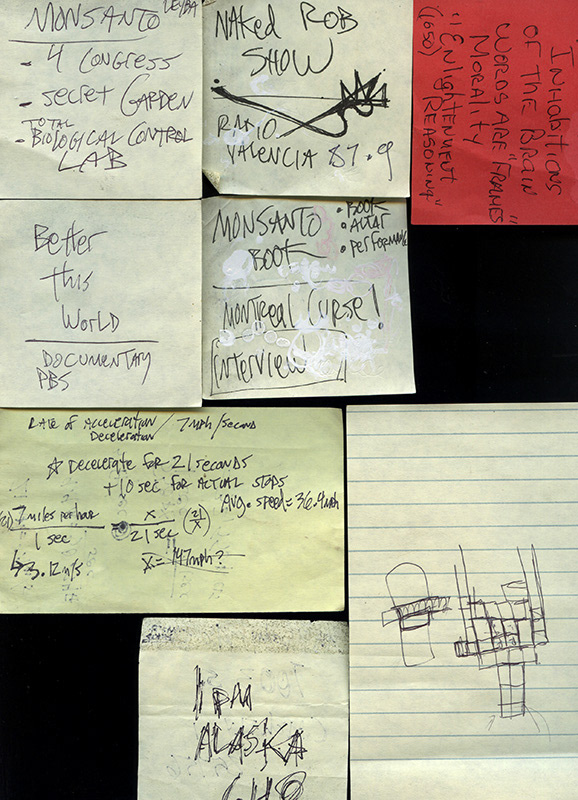 MONSANTO
- 4 CONGRESS
- SECRET GARDEN
- TOTAL
BIOLOGICAL CONTROL
LAB
NAKED ROB
SHOW
RADIO
VALENCIA 87.9
INHABITIONS
OF THE BRAIN
WORDS ARE "FRAMES"
MORALITY
"ENLIGHTENMENT
REASONING"
Better
this
World
DOCUMENTARY
PBS
MONSANTO
BOOK
• BOOK
• ALTAR
• PERFORMANCE
MONTREAL CURSE!
INTERVIEW
RATE OF ACCELERATION / 7mph/second
DECELERATION
DECELERATE FOR 21 SECONDS
+10 sec FOR ACTUAL STOPS
Avg. speed = 36.4mph
7 miles per hour
1 sec
= x
21 sec
(21/x)
3.12 m/s
x = 147mph?
11 pm
ALASKA